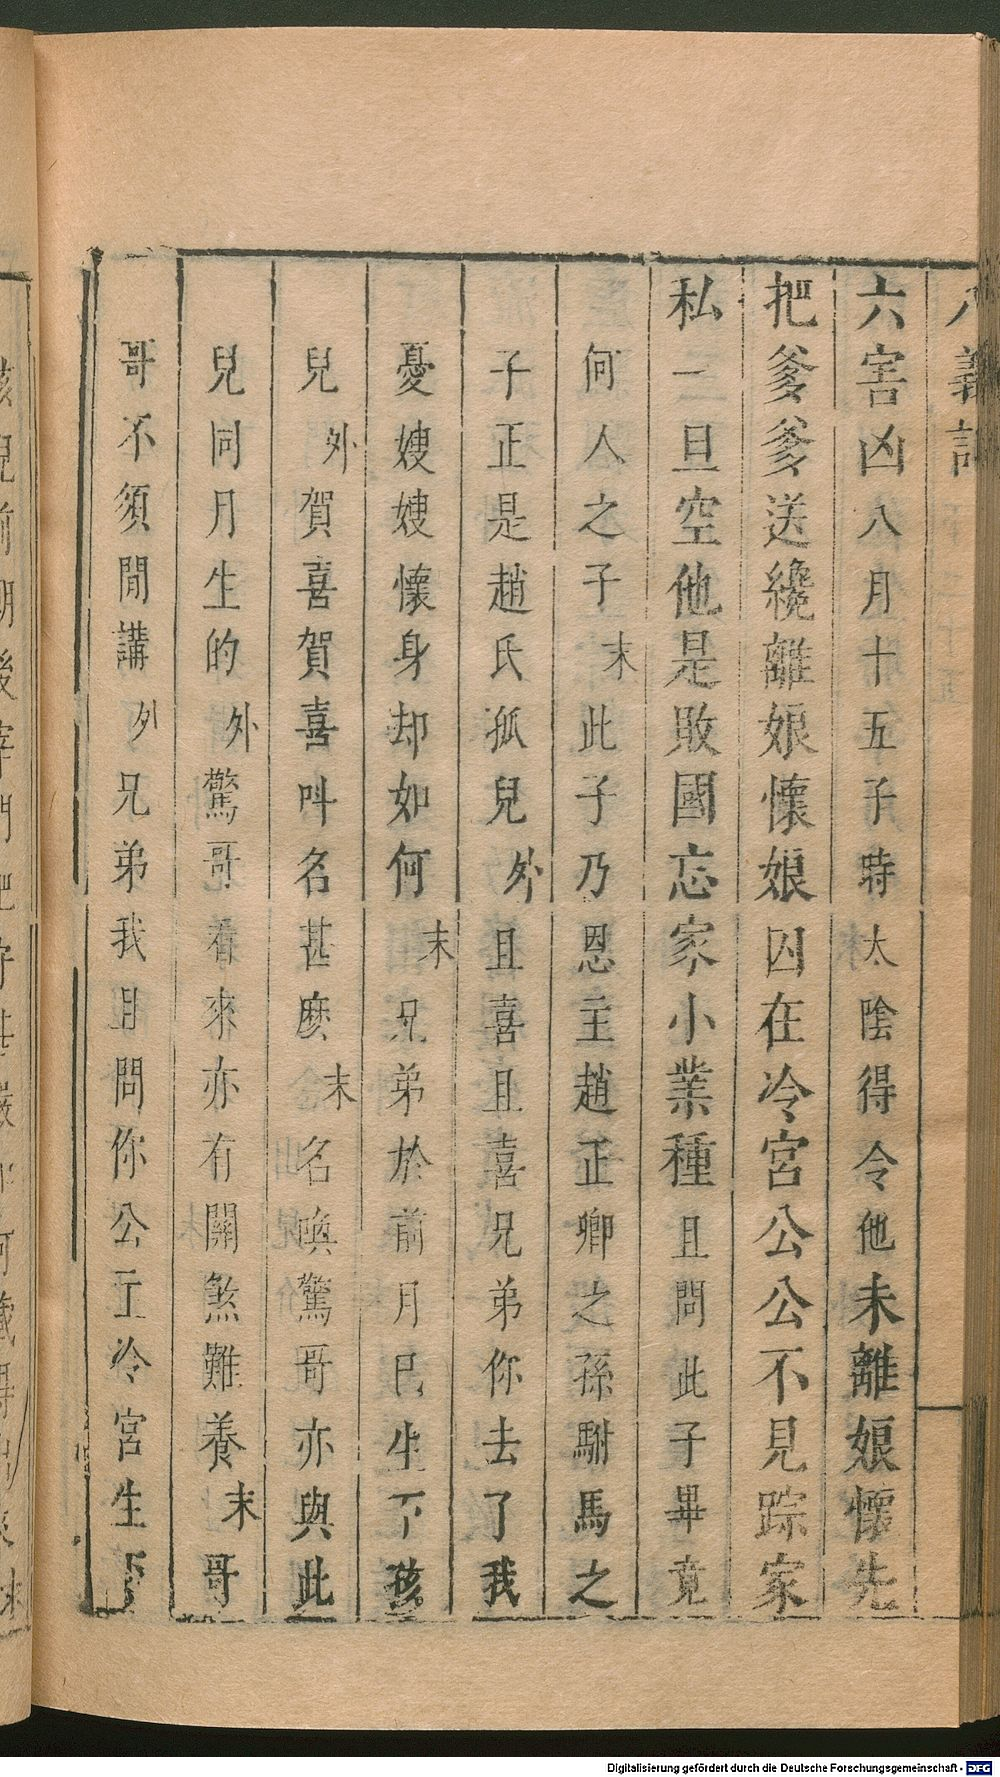 八義記
六害凶八月十五子時太陰得令他未離娘懷先
把爹爹送纔離娘懷娘囚在冷宮公公不見踪家
私一旦空他是敗國忘家小業種且問此子畢竟
何人之子末此子乃恩主趙正卿之孫駙馬之
子正是趙氏孤兒外且喜且喜兄弟你去了我
憂嫂嫂懷身却如何末兄弟於前月已生下孩
兒外賀喜賀喜叫名甚麽末名喚驚哥亦與此
兒同月生的外驚哥看來亦有關煞難養末哥
哥不須閒講外兄弟我且問你公主冷宮生下
Digitalisierung gefördert durch die Deutsche Forschungsgemeinschaft - DFG